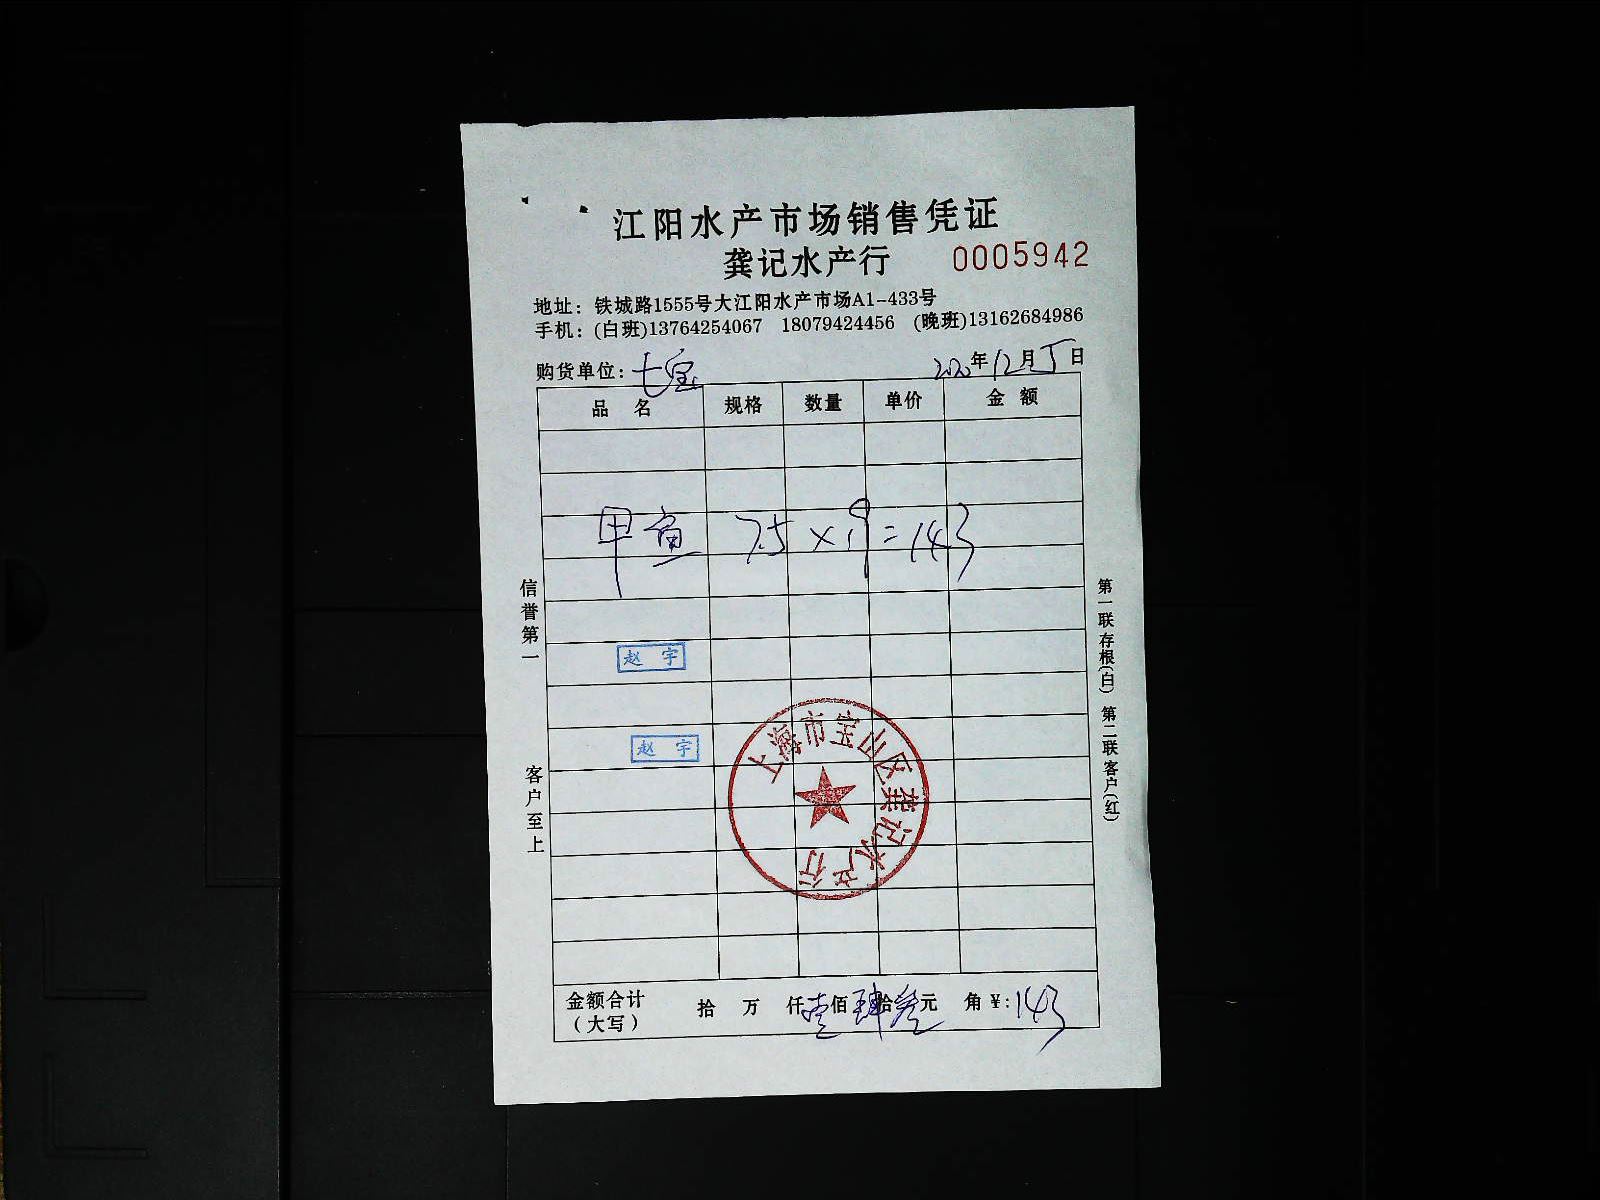 江阳水产市场销售凭证
龚记水产行 0005942
地址：铁城路1555号大江阳水产市场A1-433号
手机：(白班)13764254067 18079424456 (晚班)13162684986
购货单位：七宝 2020年12月5日
品 名 规格 数量 单价 金 额
甲鱼 7.5×19=143
赵 宇
赵 宇
上海市宝山区龚记水产行
信誉第一
客户至上
第一联存根(白) 第二联客户(红)
金额合计 拾 万 仟壹佰肆拾叁元 角 ¥:143
（大写）